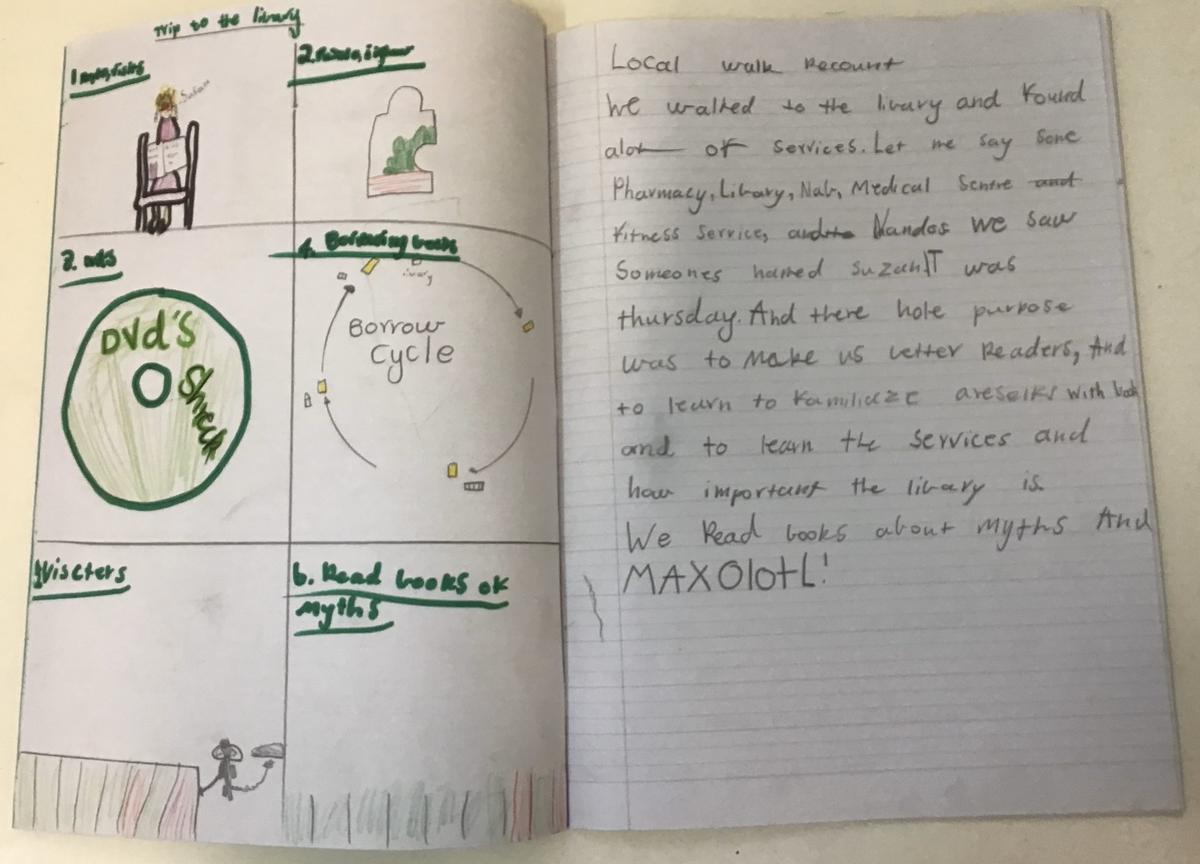 Trip to the library
1
Susan
2. Puzzle,
3.
DVd'S
Shreck
4. Borrowing books
library
Borrow
Cycle
Viscters
6. Read books of
Myths
Local walk Recount
We walked to the libary and found
alot of services. Let me say some
Pharmacy, Library, Nab, Medical Sentre and
fitness service, Nandos we saw
Someones named suzanIT was
thursday. And there hole purpose
was to Make us better Readers, And
to learn to familiaze areselfs with book
and to learn the services and
how important the library is.
We Read books about myths And
MAXOlotL!